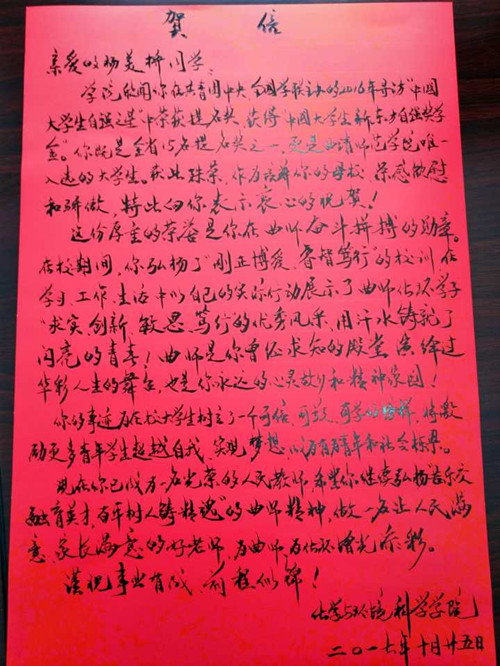 贺信
亲爱的杨美桥同学:
学院欣闻你在共青团中央、全国学联主办的2016年寻访“中国
大学生自强之星”中荣获提名奖,获得“中国大学生新东方自强奖学
金”。你既是全省15名提名奖之一,更是曲靖师范学院唯一
入选的大学生。获此殊荣,作为培养你的母校,深感欣慰
和骄傲,特此向你表示衷心的祝贺!
这份厚重的荣誉是你在曲师奋斗拼搏的勋章。
在校期间,你弘扬了“刚正博爱、睿智笃行”的校训,在
学习、工作、生活中以自己的实际行动展示了曲师化环学子
“求实、创新、敏思、笃行的优秀风采,用汗水铸就了
闪亮的青春!曲师是你曾经求知的殿堂、演绎过
华彩人生的舞台,也是你永远的心灵故乡和精神家园!
你的事迹为在校大学生树立了一个可信、可敬、可学的榜样,将激
励更多青年学生超越自我、实现梦想,成为有为青年和社会标杆。
现在你已成为一名光荣的人民教师,希望你继续弘扬“苦乐交
融育英才,百年树人铸精魂”的曲师精神,做一名让人民满
意、家长满意的好老师,为曲师、为化环增光添彩。
谨祝事业有成,前程似锦!
化学与环境科学学院
二〇一七年十月廿五日